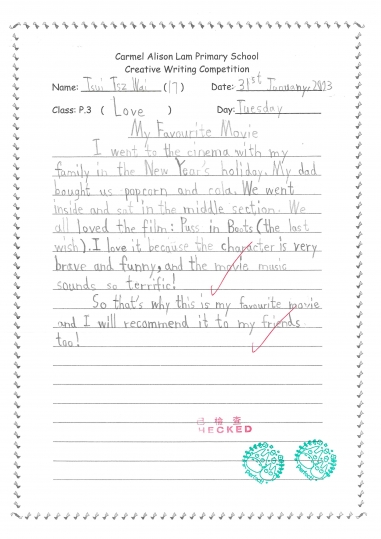 Carmel Alison Lam Primary School
Creative Writing Competition
Name: Tsui Tsz Wai (17) Date: 31st January, 2023
Class: P.3 ( Love ) Day: Tuesday
My Favourite Movie
I went to the cinema with my
family in the New Year's holiday. My dad
bought us popcorn and cola. We went
inside and sat in the middle section. We
all loved the film: Puss in Boots (the last
wish). I love it because the character is very
brave and funny, and the movie music
sounds so terrific!
So that's why this is my favourite movie
and I will recommend it to my friends
too!
已檢查
CHECKED